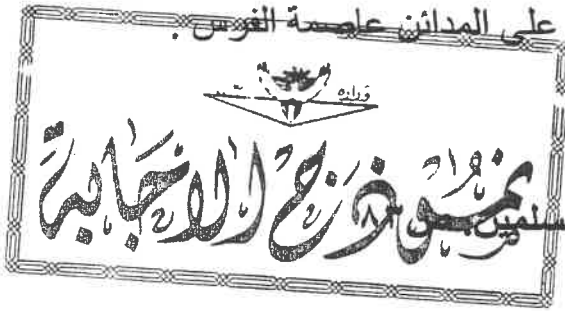 على المدائن عاصمة الفرس .
وزارة
نموذج الاجابة
سلمين ص ٨٣